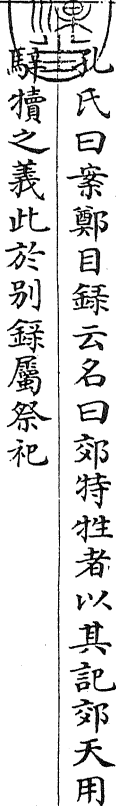 孔氏曰案鄭目錄云名曰郊特牲者以其記郊天用
騂犢之義此於别錄屬祭祀